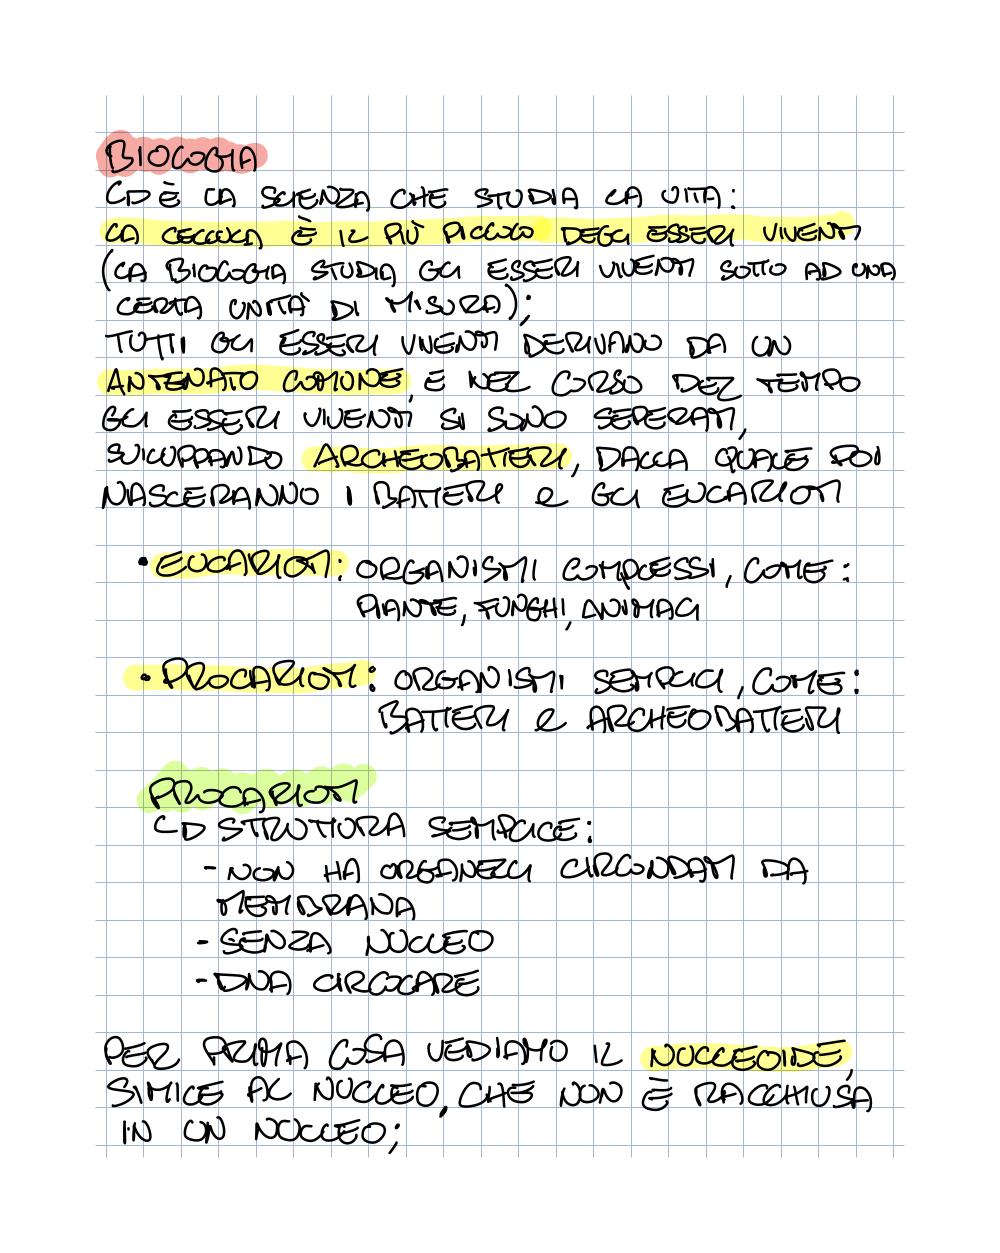 BIOLOGIA
È LA SCIENZA CHE STUDIA LA VITA:
LA CELLULA È IL PIÙ PICCOLO DEGLI ESSERI VIVENTI
(LA BIOLOGIA STUDIA GLI ESSERI VIVENTI SOTTO AD UNA
CERTA UNITÀ DI MISURA);
TUTTI GLI ESSERI VIVENTI DERIVANO DA UN
ANTENATO COMUNE, E NEL CORSO DEL TEMPO
GLI ESSERI VIVENTI SI SONO SEPERATI,
SVILUPPANDO ARCHEOBATTERI, DALLA QUALE POI
NASCERANNO I BATTERI E GLI EUCARIOTI
• EUCARIOTI: ORGANISMI COMPLESSI, COME:
PIANTE, FUNGHI, ANIMALI
• PROCARIOTI: ORGANISMI SEMPLICI, COME:
BATTERI E ARCHEOBATTERI
PROCARIOTI
STRUTTURA SEMPLICE:
- NON HA ORGANELLI CIRCONDATI DA
MEMBRANA
- SENZA NUCLEO
- DNA CIRCOLARE
PER PRIMA COSA VEDIAMO IL NUCLEOIDE,
SIMILE AL NUCLEO, CHE NON È RACCHIUSA
IN UN NUCLEO;